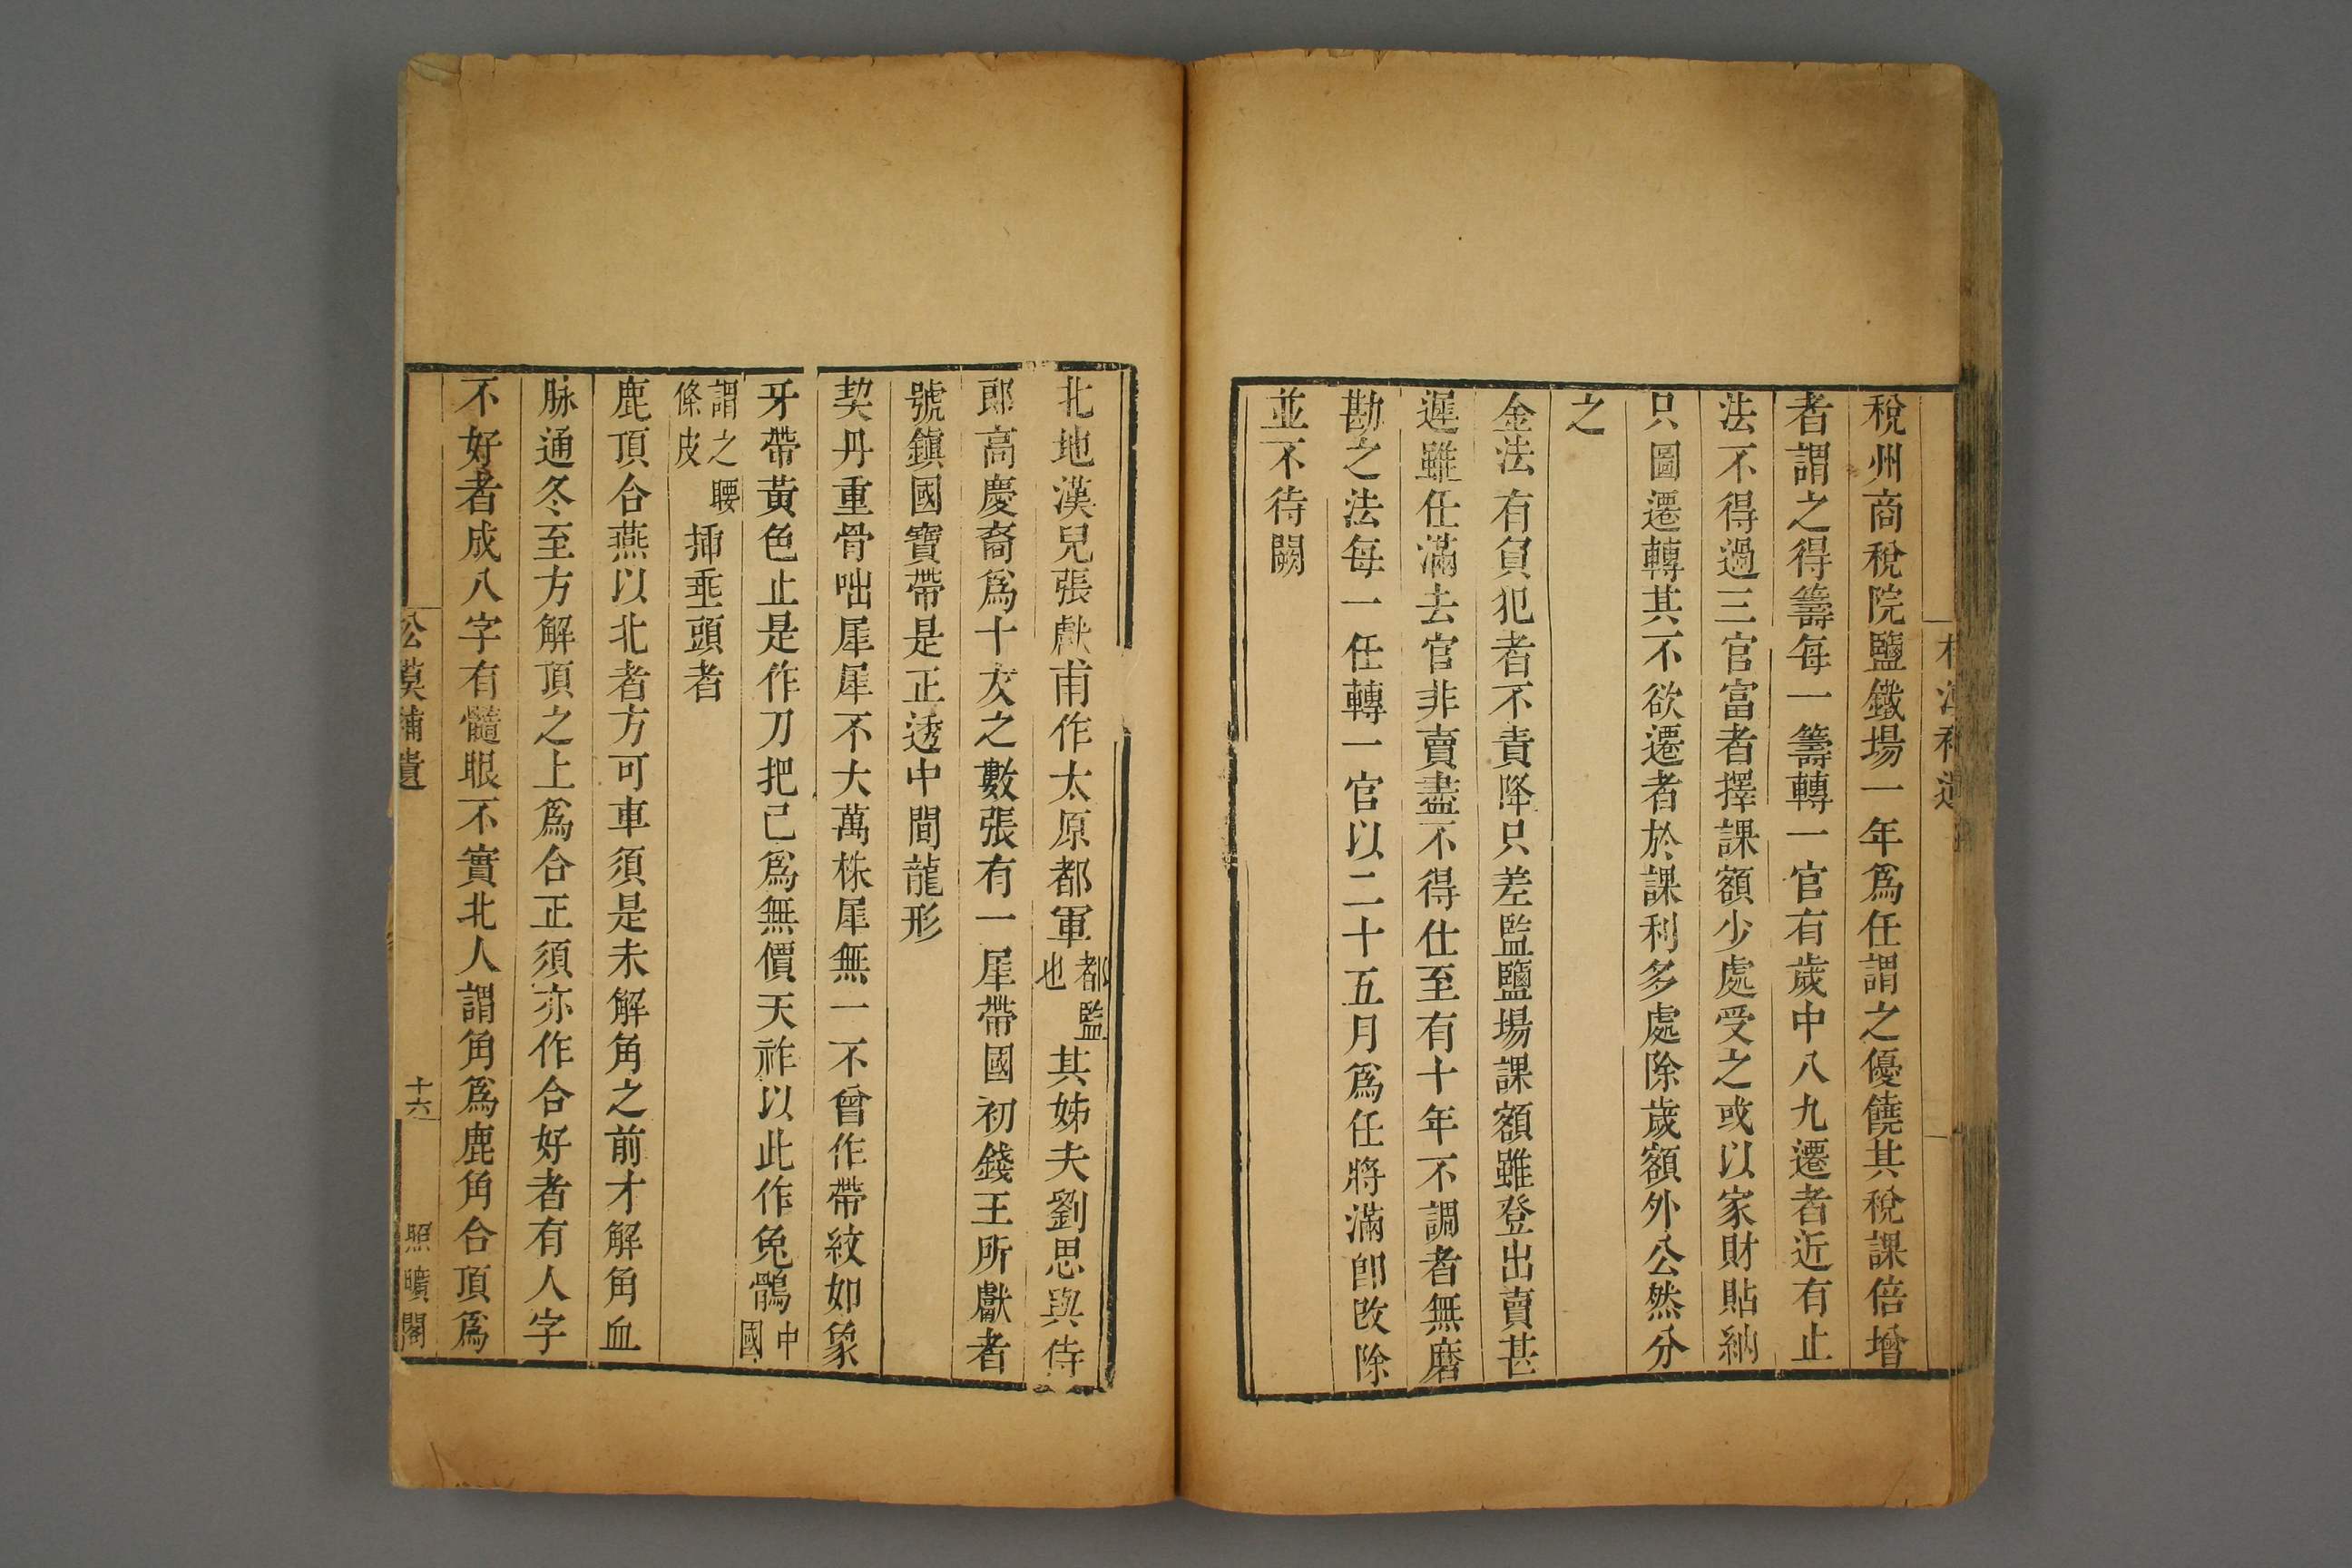 稅州商稅院鹽鐵場一年爲任謂之優饒其稅課倍增
者謂之得籌每一籌轉一官有歲中八九遷者近有止
法不得過三官富者擇課額少處受之或以家財貼納
只圖遷轉其不欲遷者於課利多處除歲額外公然分
之
金法有負犯者不責降只差監鹽場課額雖登出賣甚
遲雖任滿去官非賣盡不得仕至有十年不調者無磨
勘之法每一任轉一官以二十五月爲任將滿卽改除
並不待闕
北地漢兒張獻甫作太原都軍都監也其姊夫劉思與侍
郎高慶裔爲十友之數張有一犀帶國初錢王所獻者
號鎭國寶帶是正透中間龍形
契丹重骨咄犀犀不大萬株犀無一不曾作帶紋如象
牙帶黃色止是作刀把已爲無價天祚以此作兔鶻中國
謂之腰條皮揷垂頭者
鹿頂合燕以北者方可車須是未解角之前才解角血
脉通冬至方解頂之上爲合正須亦作合好者有人字
不好者成八字有髓眼不實北人謂角爲鹿角合頂爲
松漠補遺
十六
照曠閣